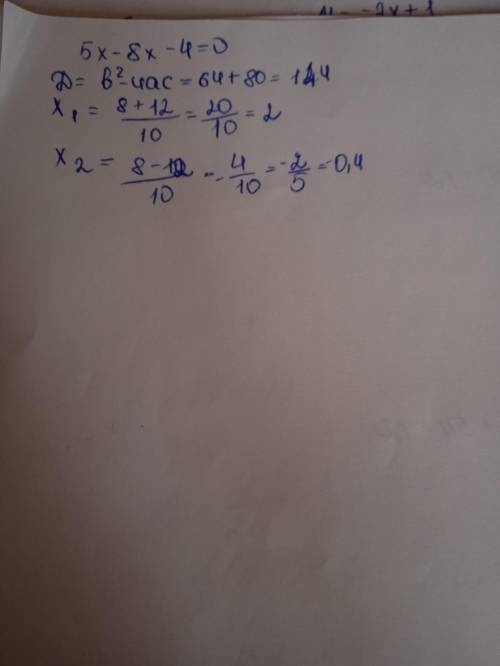 y = -2x+1
5x-8x-4=0
D= b²-4ac = 64+80=144
x₁ = 8+12/10 = 20/10 = 2
x₂ = 8-12/10 = -4/10 = -2/5 = -0,4